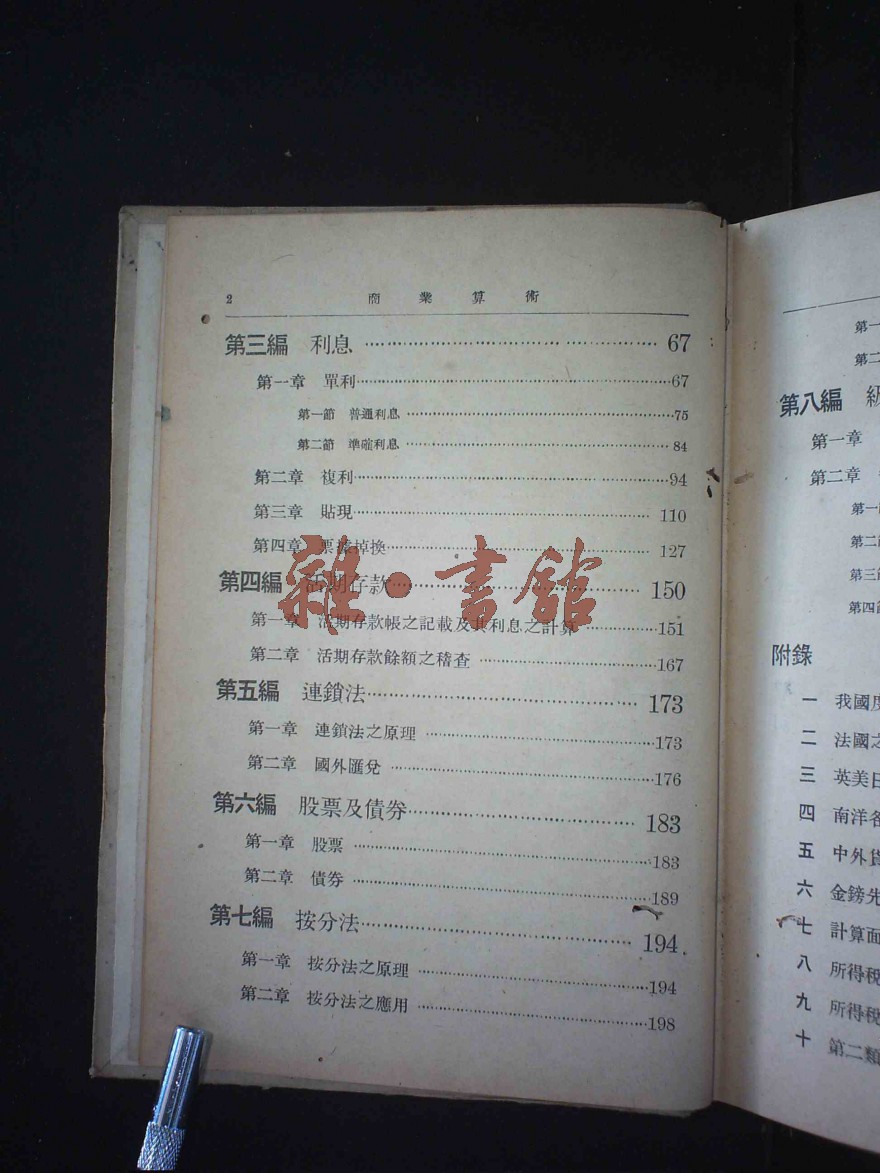 2 商業算術
第三編 利息 67
第一章 單利 67
第一節 普通利息 75
第二節 準確利息 84
第二章 複利 94
第三章 貼現 110
第四章 票據掉換 127
第四編 活期存款 150
第一章 活期存款帳之記載及其利息之計算 151
第二章 活期存款餘額之稽查 167
第五編 連鎖法 173
第一章 連鎖法之原理 173
第二章 國外匯兌 176
第六編 股票及債券 183
第一章 股票 183
第二章 債券 189
第七編 按分法 194
第一章 按分法之原理 194
第二章 按分法之應用 198
雜·書館
第一
第二
第八編 級
第一章
第二章
第一
第二
第三節
第四節
附錄
一 我國度
二 法國之
三 英美日
四 南洋各
五 中外貨
六 金鎊先
七 計算面
八 所得稅
九 所得稅
十 第二類